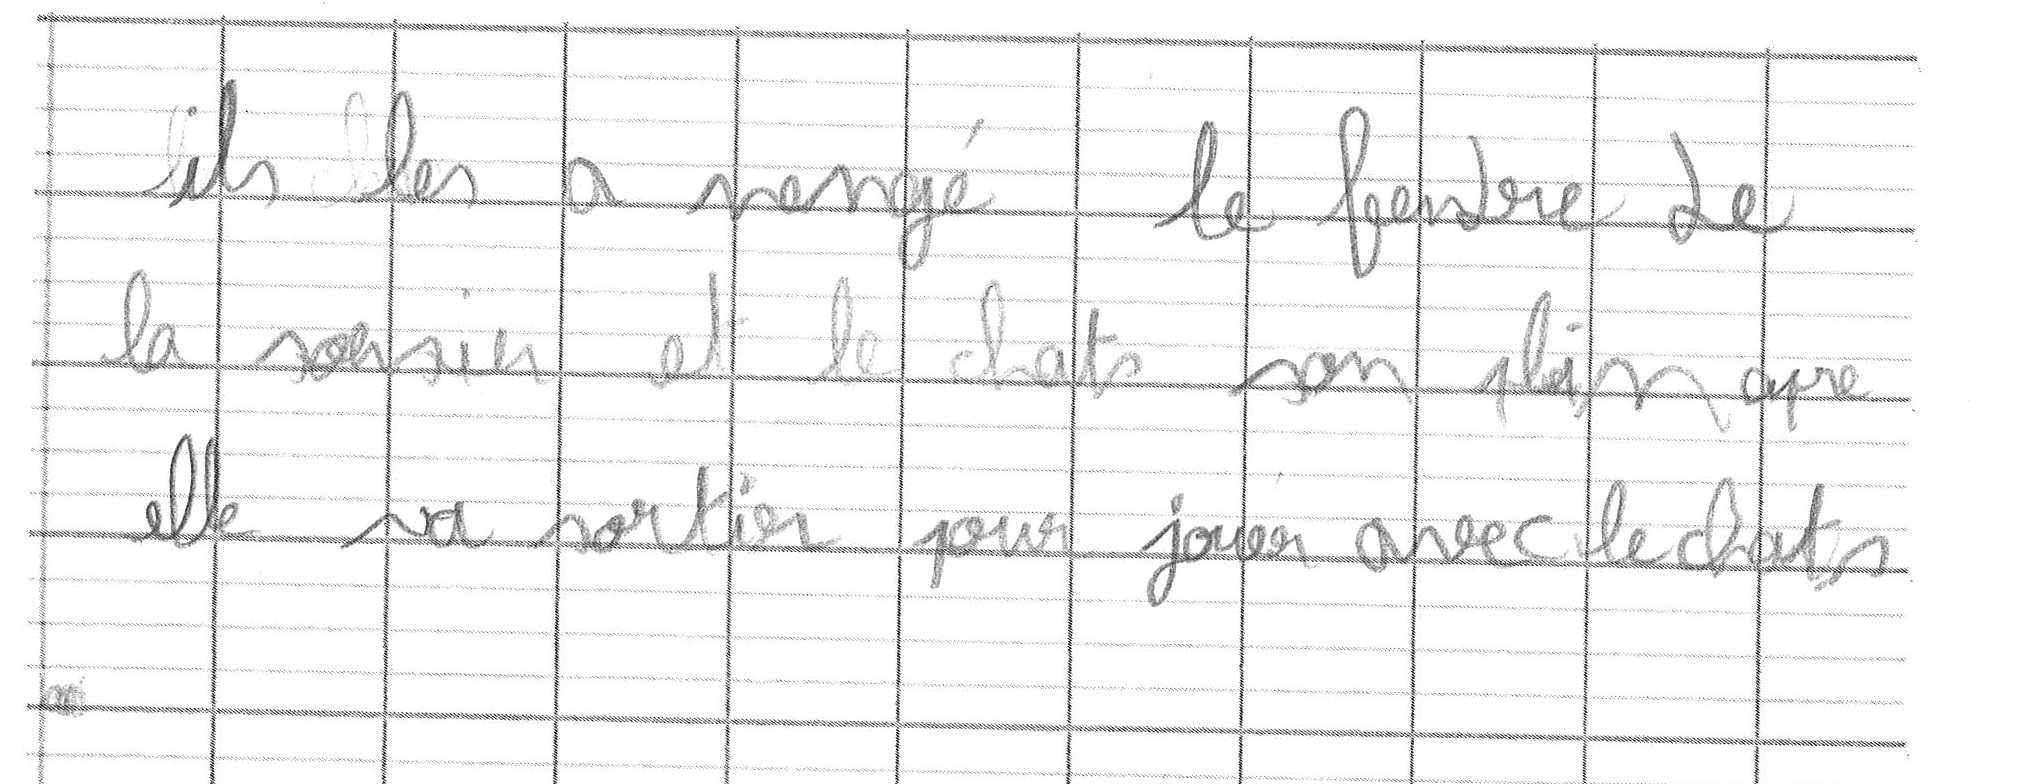 ils les a mengé le fendre de
la sorsier et le chats son plein apre
elle va sortier pour jouer avec le chats